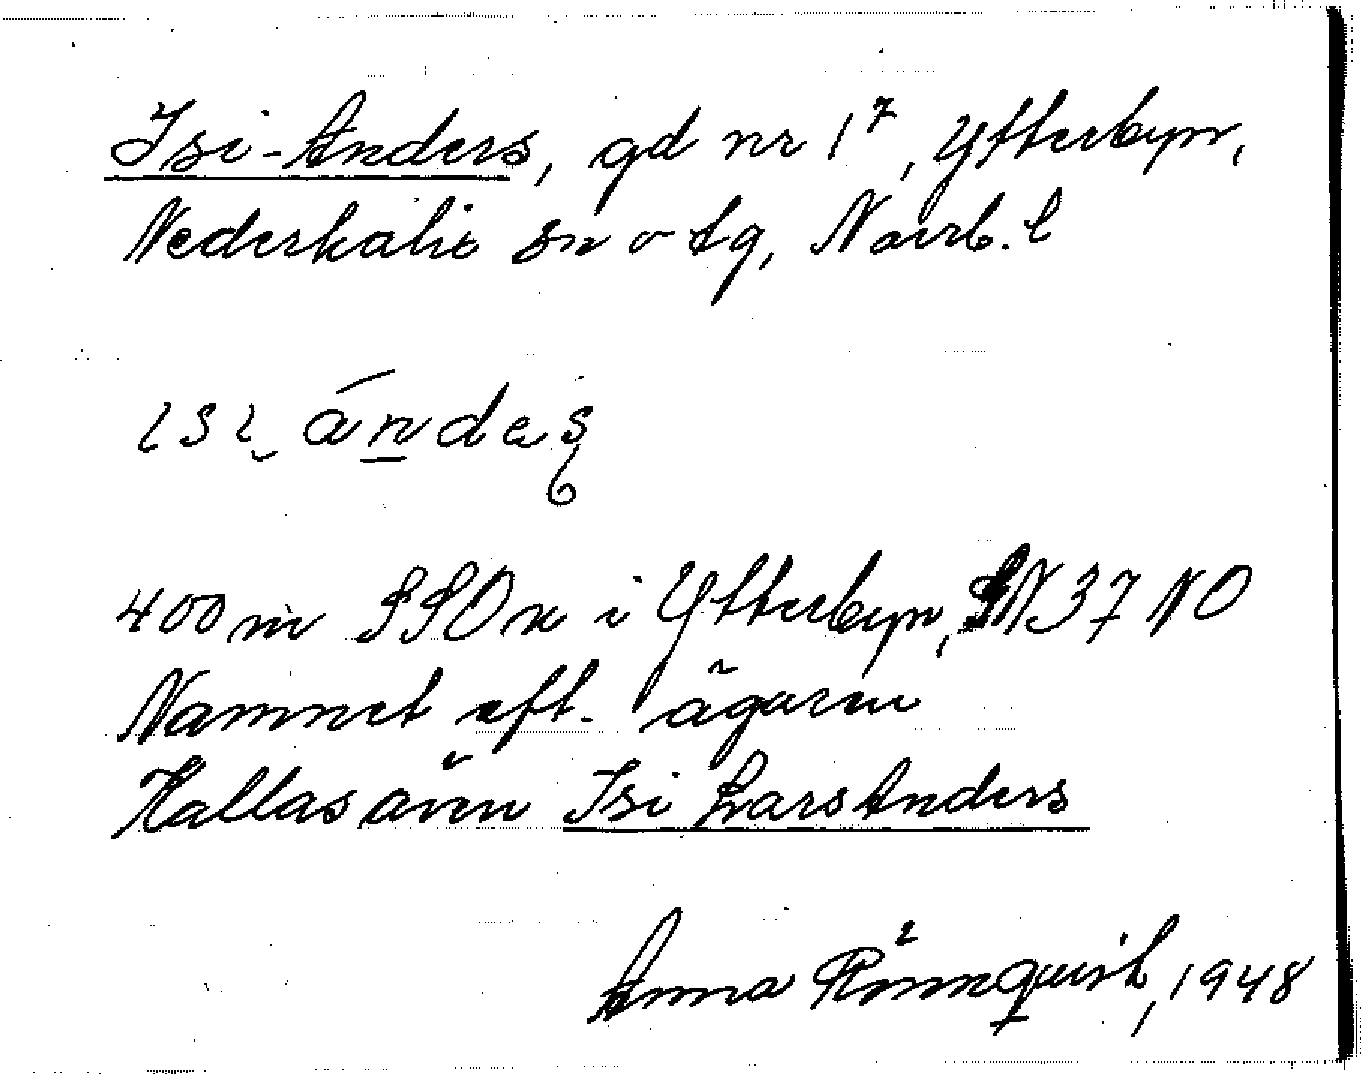 Isi-Anders, gd nr 1⁷, Ytterbyn,
Nederkalix sn o tg, Norrb. l
ɩsɩ ándas
400 m SSO x i Ytterbyn, SN 37 NO
Namnet eft. ägaren
Kallas även Isi Lars Anders
Anna Rönnquist, 1948